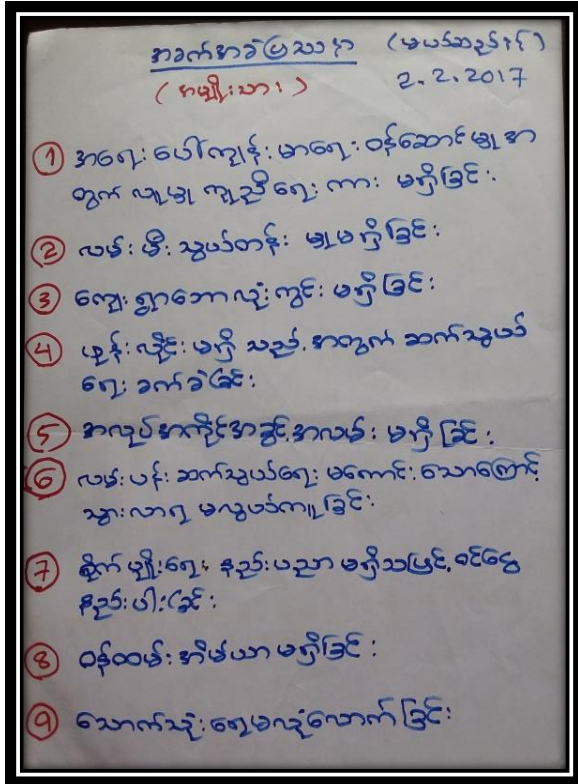 အခက်အခဲပြဿနာ (မယ်ဆည်နင်)
(အမျိုးသား) 2.2.2017
① အရေးပေါ်ကျန်းမာရေးဝန်ဆောင်မှုအ
တွက် လူမှုကူညီရေးကား မရှိခြင်း
② လမ်းမီးသွယ်တန်းမှုမရှိခြင်း
③ ကျေးရွာဘောလုံးကွင်း မရှိခြင်း
④ ဖုန်းလိုင်းမရှိသည့်အတွက် ဆက်သွယ်
ရေးခက်ခဲခြင်း
⑤ အလုပ်အကိုင်အခွင့်အလမ်း မရှိခြင်း
⑥ လမ်းပန်းဆက်သွယ်ရေး မကောင်းသောကြောင့်
သွားလာရ မလွယ်ကူခြင်း
⑦ စိုက်ပျိုးရေး နည်းပညာ မရှိသဖြင့် ဝင်ငွေ
နည်းပါးခြင်း
⑧ ဝန်ထမ်းအိမ်ယာမရှိခြင်း
⑨ သောက်သုံးရေမလုံလောက်ခြင်း